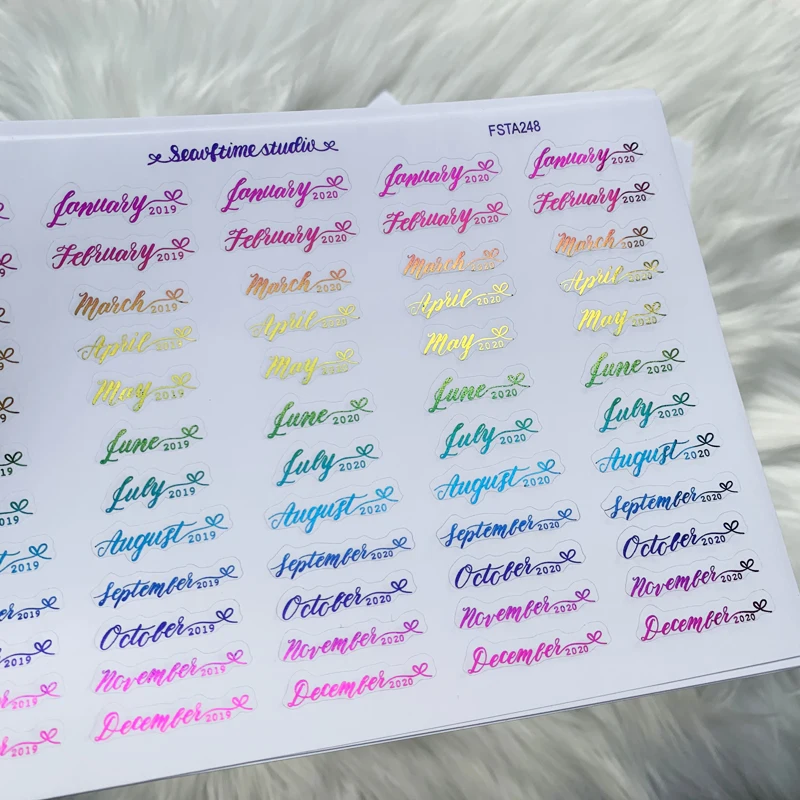 Seavftime studiv
FSTA248
January 2019 January 2020 January 2020 January 2020
February 2019 February 2020 February 2020 February 2020
March 2019 March 2020 March 2020 March 2020
April 2019 April 2020 April 2020 April 2020
May 2019 May 2020 May 2020 May 2020
June 2019 June 2020 June 2020 June 2020
019 July 2019 July 2020 July 2020 July 2020
2019 August 2019 August 2020 August 2020 August 2020
2019 September 2019 September 2020 September 2020 September 2020
2019 October 2019 October 2020 October 2020 October 2020
2019 November 2019 November 2020 November 2020 November 2020
2019 December 2019 December 2020 December 2020 December 2020